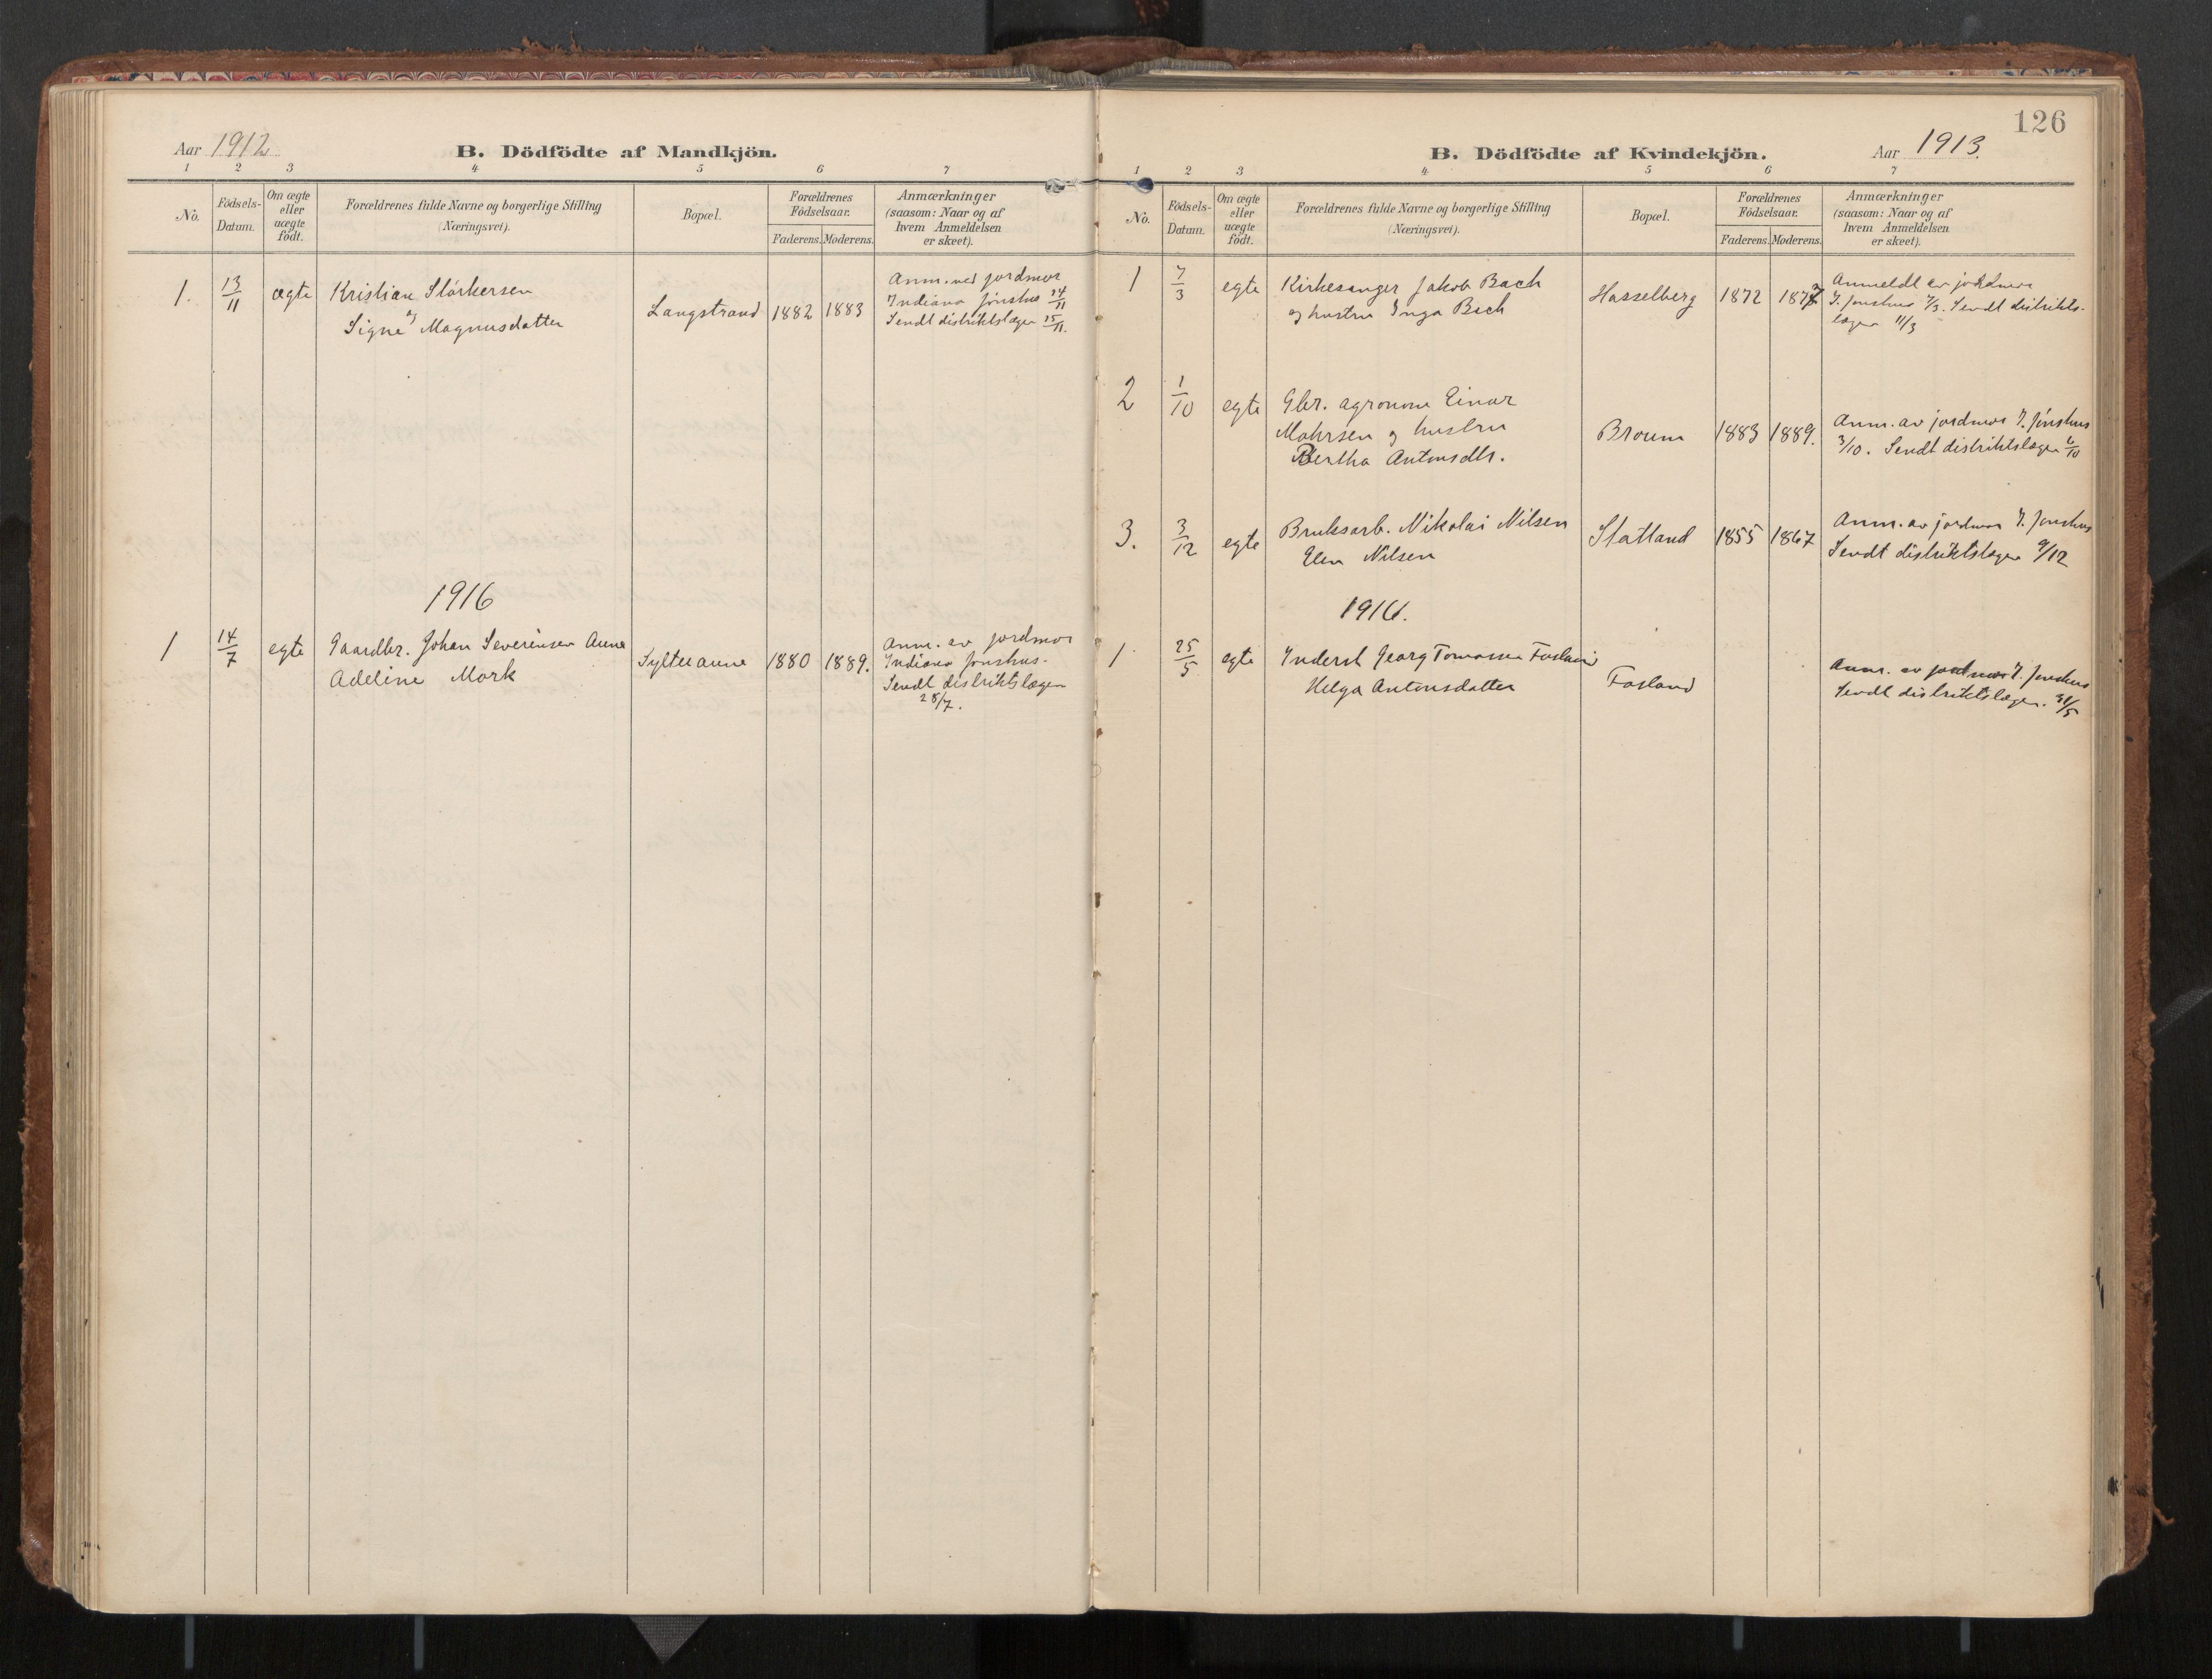 Aar 1912
B. Dödfödte af Mandkjön.
1 2 3 4 5 6 7
No.
Födsels-
Datum.
Om ægte
eller
uægte
födt.
Forældrenes fulde Navne og borgerlige Stilling
(Næringsvei).
Bopæl.
Forældrenes
Födselsaar.
Faderens. Moderens.
Anmærkninger
(saasom: Naar og af
hvem Anmeldelsen
er skeet).
1. 13/11 ægte Kristian Stórkersen
og
Signe Magnusdatter
Langstrand 1882 1883
Anm. ved jordmor
Indiana Jónshus 14/11
Sendt distriktslægen 15/11.
1916
1 14/7 egte Gaardbr. Johan Severinsen Anne
Adeline Mork
1880 1889.
Anm. av jordmor
Indiana Jonshus.
Sendt distriktslægen
28/7.
126
B. Dödfödte af Kvindekjön.
Aar 1913.
1 2 3 4 5 6 7
No.
Födsels-
Datum.
Om ægte
eller
uægte
födt.
Forældrenes fulde Navne og borgerlige Stilling
(Næringsvei).
Bopæl.
Forældrenes
Födselsaar.
Faderens. Moderens.
Anmærkninger
(saasom: Naar og af
hvem Anmeldelsen
er skeet).
1 7/3 egte Kirkesanger Jakob Bach
og hustru Inga Bach
Hasselberg 1872
Anmeldt av jordmor
I. Jonshus 7/3. Sendt distrikts-
lægen 11/3
2 1/10 egte Gbr. agronom Einar
Mohrsen og hustru
Bertha Antonsdtr.
Broum 1883 1889.
Anm. av jordmor I. Jónshus
3/10. Sendt distriktslægen 6/10
3. 3/12 egte Bruksarb. Nikolai Nilsen
Elen Nilsen
Statland 1855 1867
Anm. av jordmor I. Jonshus
Sendt distriktslægen 9/12
1916.
1 25/5 egte Inderst Georg Tomassen Fosland
Helga Antonsdatter
Fosland
Anm. av jordmor I. Jonshus
Sendt distriktslægen. 31/5